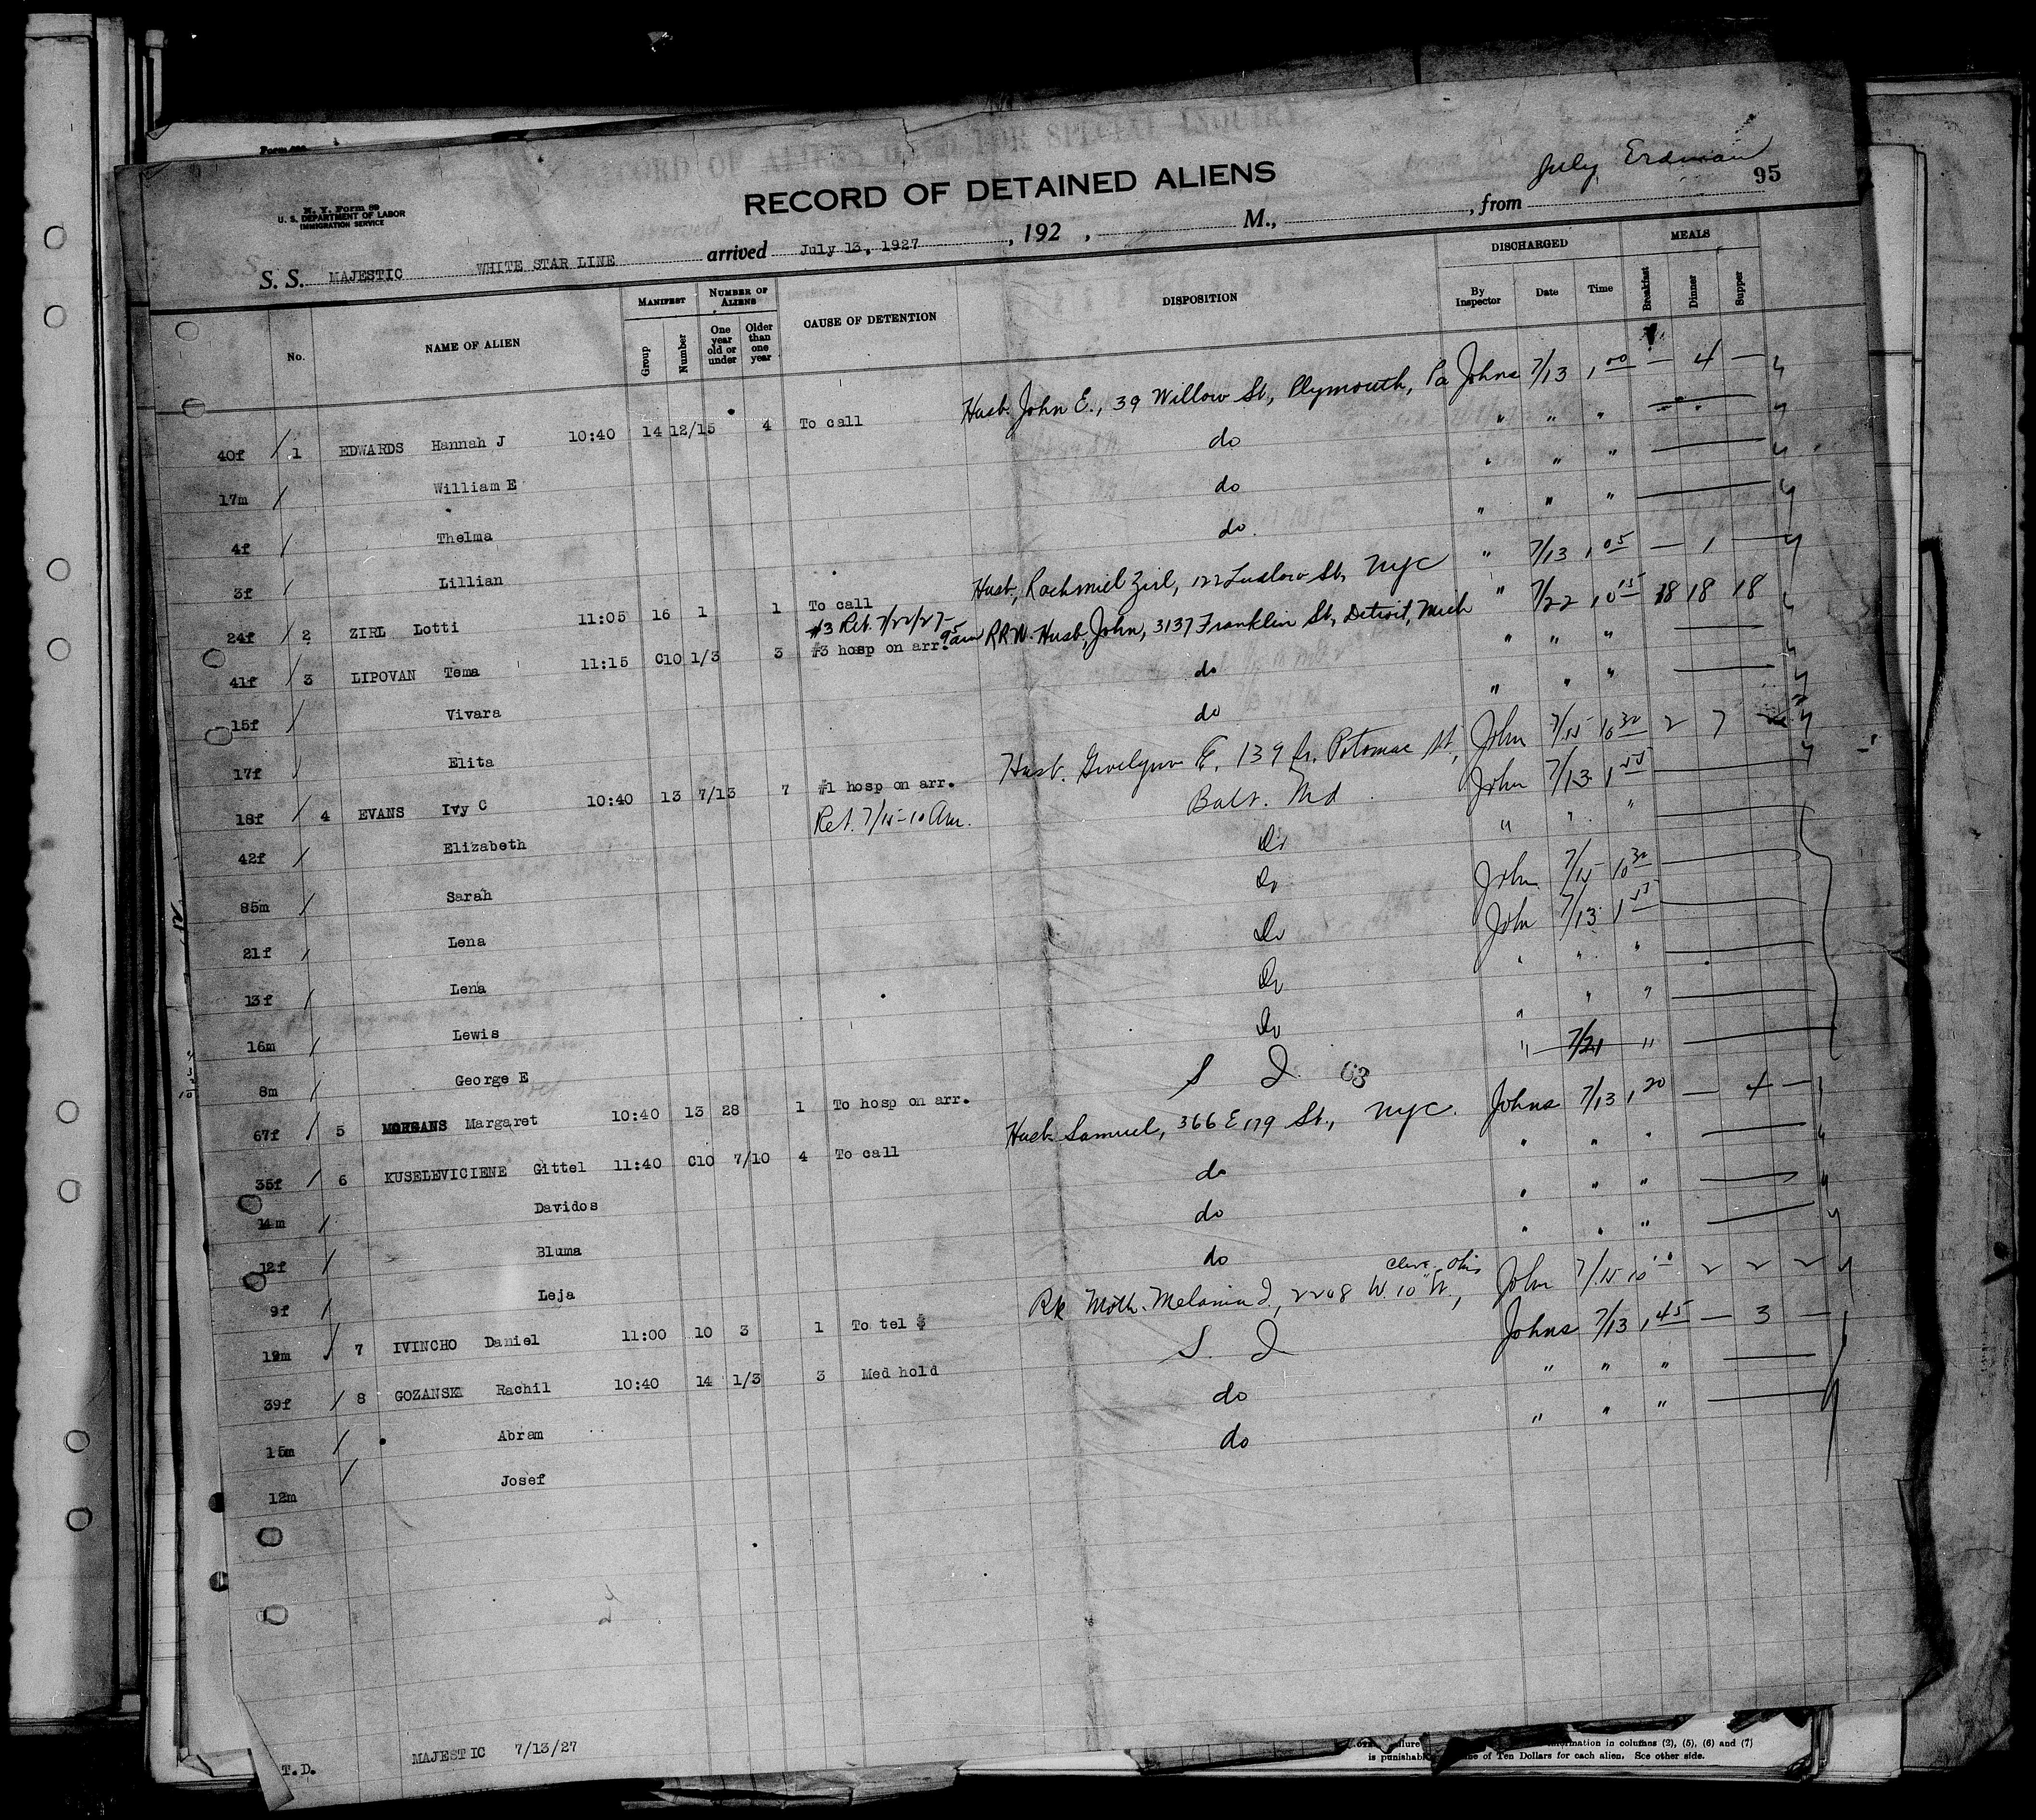 July Erdman
95
N. Y. Form 89
U. S. DEPARTMENT OF LABOR
IMMIGRATION SERVICE
RECORD OF DETAINED ALIENS
S. S. MAJESTIC WHITE STAR LINE arrived July 13, 1927, 192 , M., , from
No. NAME OF ALIEN MANIFEST Group Number NUMBER OF ALIENS One year old or under Older than one year CAUSE OF DETENTION DISPOSITION DISCHARGED By Inspector Date Time MEALS Breakfast Dinner Supper
40f / 1 EDWARDS Hannah J 10:40 14 12/15 4 To call Husb. John E., 39 Willow St., Plymouth, Pa Johns 7/13 1 00 — 4 —
17m / William E do " " "
4f / Thelma do " " "
3f / Lillian do " " "
24f / 2 ZIRL Lotti 11:05 16 1 1 To call Husb, Rachmiel Zirl, 122 Ludlow St, NYC " 7/13 1 05 — 1 —
#3 Ret. 7/22/27- 9 5 am
41f / 3 LIPOVAN Tema 11:15 C10 1/3 3 #3 hosp on arr. RRW. Husb, John, 3137 Franklin St, Detroit, Mich " 7/22 10 15 18 18 18
15f / Vivara do " " "
17f / Elita do " " "
18f / 4 EVANS Ivy C 10:40 13 7/13 7 #1 hosp on arr. Husb. E. 139 Potomac St, John 7/15 10 30 2 7
42f / Elizabeth Ret. 7/15-10 Am. Balt. Md John 7/13 1 55
85m / Sarah Do " " "
21f / Lena Do John 7/15 10 30
13f / Lena Do John 7/13 1 55
16m / Lewis Do " " "
8m / George E Do " " "
67f / 5 MORGANS Margaret 10:40 13 28 1 To hosp on arr. S I 63 " 7/21 "
35f / 6 KUSELEVICIENE Gittel 11:40 C10 7/10 4 To call Husb. Samuel, 366 E 179 St., NYC. Johns 7/13 1 20 — 4 —
14m / Davidos do " " "
12f / Bluma do " " "
9f / Leja do " " "
Cleve. Ohio
19m / 7 IVINCHO Daniel 11:00 10 3 1 To tel $ Moth. Melania I., 2208 W. 10" St, John 7/15 10 2 2 2
39f / 8 GOZANSKI Rachil 10:40 14 1/3 3 Med hold S. I Johns 7/13 1 45 — 3 —
15m / Abram do " " "
12m / Josef do " " "
T.D. MAJESTIC 7/13/27
information in columns (2), (5), (6) and (7)
is punishable of Ten Dollars for each alien. See other side.